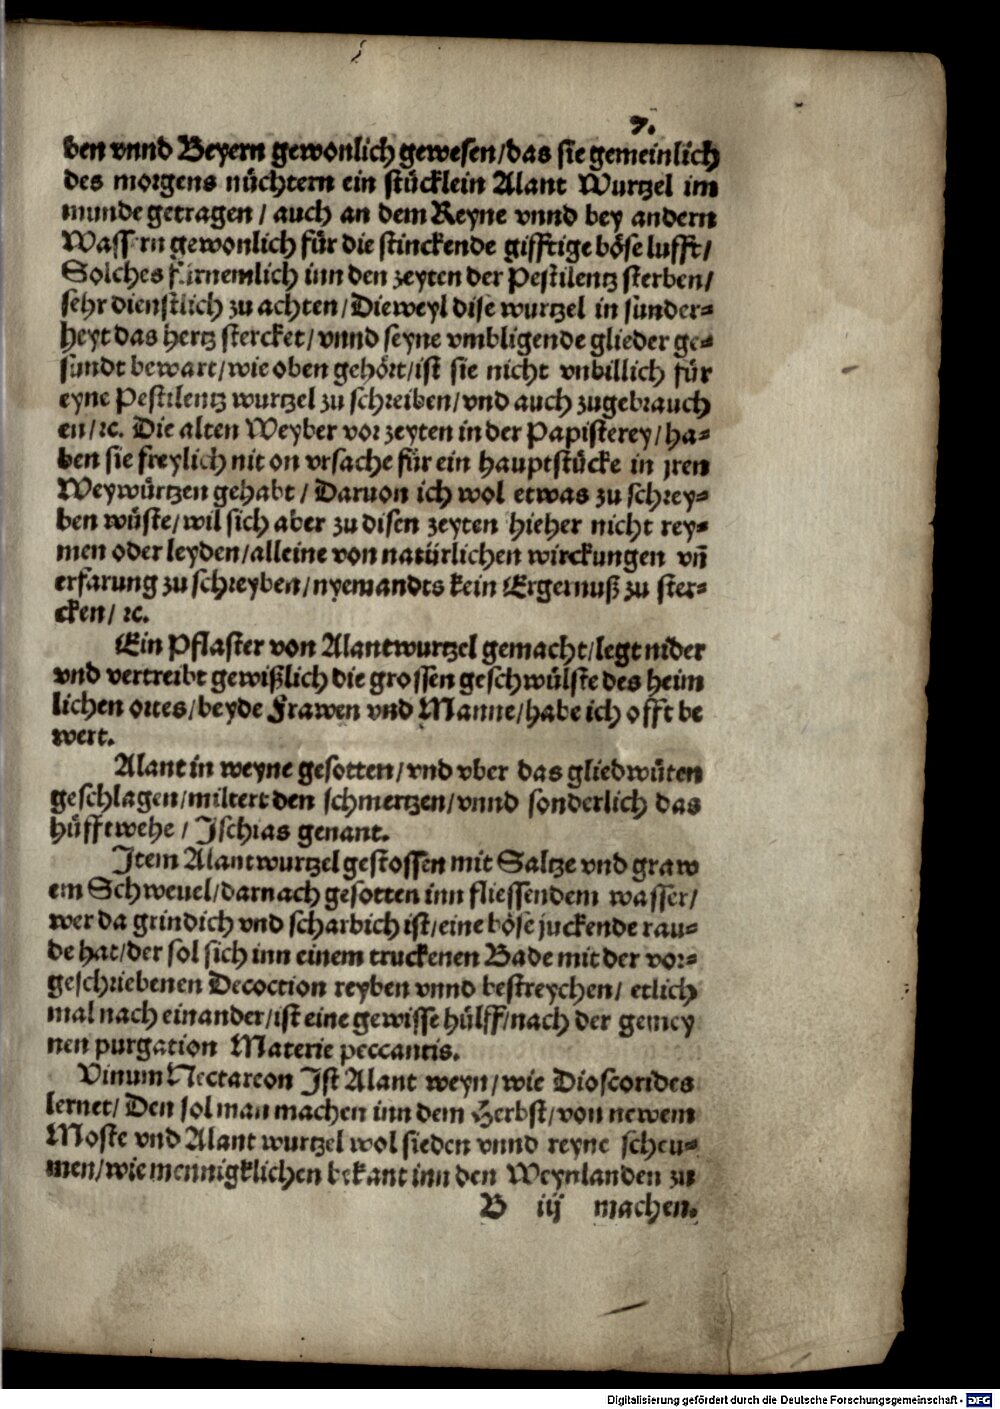 7.
ben vnnd Beyern gewonlich gewesen/das sie gemeinlich
des morgens nüchtern ein stücklein Alant Wurtzel im
munde getragen / auch an dem Reyne vnnd bey andern
Wassern gewonlich für die stinckende gifftige böse lufft/
Solches fürnemlich inn den zeyten der Pestilentz sterben/
sehr dienstlich zu achten/Dieweyl dise wurtzel in sunder⸗
heyt das hertz stercket/vnnd seyne vmbligende glieder ge⸗
sundt bewart/wie oben gehört/ist sie nicht vnbillich für
eyne Pestilentz wurtzel zu schreiben/vnd auch zugebrauch
en/ꝛc. Die alten Weyber vor zeyten in der Papisterey/ha⸗
ben sie freylich nit on vrsache für ein hauptstücke in jren
Weywürtzen gehabt / Daruon ich wol etwas zu schrey⸗
ben wüste/wil sich aber zu disen zeyten hieher nicht rey⸗
men oder leyden/alleine von natürlichen wirckungen vñ
erfarung zu schreyben/nyemandts kein Ergernuß zu ster⸗
cken/ ꝛc.
Ein Pflaster von Alantwurtzel gemacht/legt nider
vnd vertreibt gewißlich die grossen geschwülste des heim
lichen ortes/beyde Frawen vnd Manne/habe ich offt be
wert.
Alant in weyne gesotten/vnd vber das gliedwüten
geschlagen/miltert den schmertzen/vnnd sonderlich das
hüfftwehe / Ischias genant.
Item Alantwurtzel gestossen mit Saltze vnd graw
em Schweuel/darnach gesotten inn fliessendem wasser/
wer da grindich vnd scharbich ist/eine böse juckende rau⸗
de hat/der sol sich inn einem truckenen Bade mit der vor⸗
geschriebenen Decoction reyben vnnd bestreychen/ etlich
mal nach einander/ist eine gewisse hülff/nach der gemey
nen purgation Materie peccantis.
Vinum Nectareon Ist Alant weyn/wie Dioscorides
lernet/ Den sol man machen inn dem Herbst/von newem
Moste vnd Alant wurtzel wol sieden vnnd reyne scheu⸗
men/wie mennigklichen bekant inn den Weynlanden zu
B iij machen.
Digitalisierung gefördert durch die Deutsche Forschungsgemeinschaft - DFG